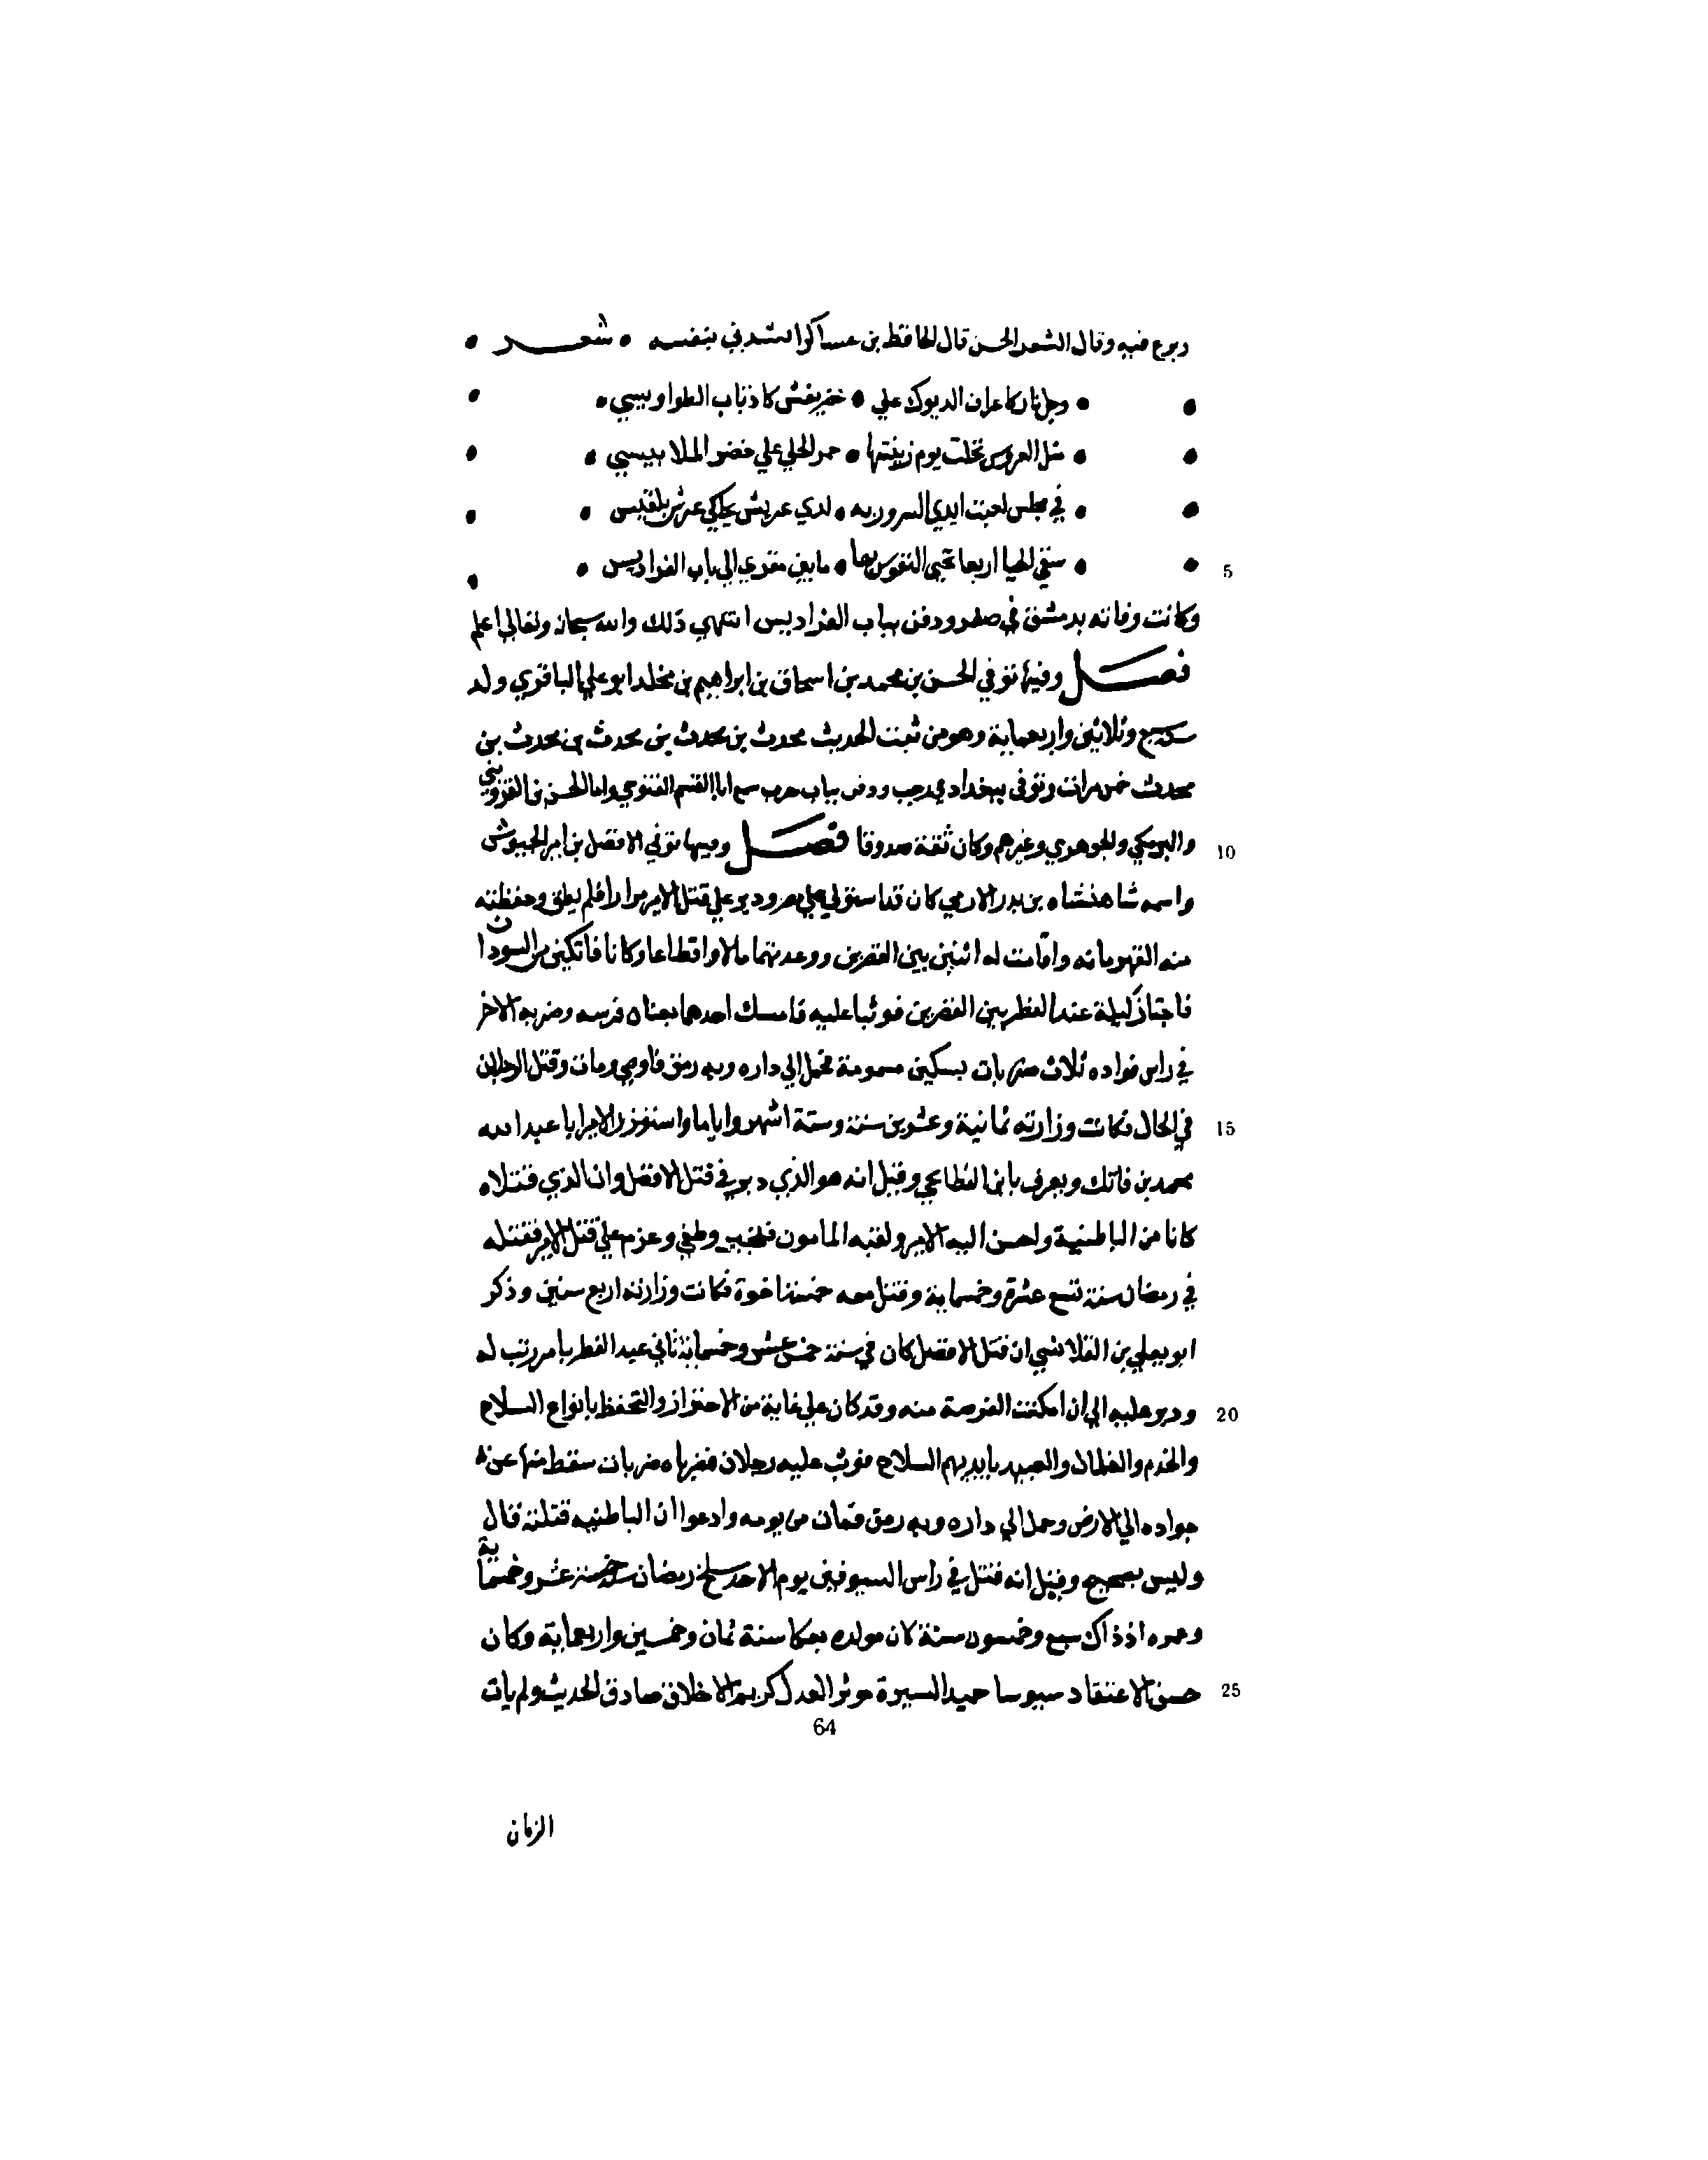 وبرع فيه وقال الشعر الحسن قال الحافظ بن عساكر انشدني بنفسه • شعر •
• • وجلنار كاعراف الديوك علي • خضر يفش كاذناب الطواويسي • •
• • مثل العروس تجلت يوم زينتها • حمر الحلي علي خضر الملابيسي • •
• • في مجلس لعبت ايدي السرور به • لدي عريش يحاكي عرش بلقيس • •
5 • • سقي الحيا اربعا تحيي النفوس بها • ما بين مقري الي باب الفراديس • •
وكانت وفاته بدمشق في صفر ودفن بباب الفراديس انتهي ذلك والله سبحانه وتعالي اعلم
فصل وفيها توفي الحسن بن محمد بن اسحاق بن ابراهيم بن مخلد ابو علي الباقرحي ولد
سنة سبع وثلاثين واربعماية وهو من بيت الحديث محدث بن محدث بن محدث بن محدث بن
محدث خمس مرات وتوفي ببغداد في رجب ودفن بباب حرب سمع ابا القسم التنوخي وابا الحسن القزويني
10 والبرمكي والجوهري وغيرهم وكان ثقة صدوقا فصل وفيها توفي الافضل بن امير الجيوش
واسمه شاهنشاه بن بدر الارمي كان قد استولي علي مصر ودبر علي قتل الامير مرارا فلم يطق وحفظته
منه القهرمانه واقامت له اثنين بين القصرين ووعدتهما مالا واقطاعا وكانا فاتكين من السودان
فاجتاز ليلة عند الفطر بين القصرين فوثبا عليه فامسك احدهما بعنان فرسه وضربه الاخر
في راس فواده ثلاث ضربات بسكين مسمومة فحمل الي داره وبه رمق فاوصي ومات وقتل الرجلان
15 في الحال فكانت وزارته ثمانية وعشرين سنة وستة اشهر واياما واستوزر الامير ابا عبد الله
محمد بن فاتك ويعرف بابن البطايحي وقيل انه هو الذي دبر في قتل الافضل وان الذي قتلاه
كانا من الباطنية واحسن اليه الامير ولقبه المامون فتجبر وطغي وعزم علي قتل الامير فقتله
في رمضان سنة تسع عشرة وخمسماية وقتل معه خمسة اخوة فكانت وزارته اربع سنين وذكر
ابو يعلي بن القلانسي ان قتل الافضل كان في سنة خمس عشر وخمسماية ثاني عيد الفطر بامر رتب له
20 ودبر عليه الي ان امكنت الفرصة منه وقد كان علي غاية من الاحتراز والتحفظ بانواع السلاح
والخدم والغلمان والعبيد بايديهم السلاح فوثب عليه رجلان فضرباه ضربات سقط منها عن
جواده الي الارض وحمل الي داره وبه رمق فمات من يومه وادعوا ان الباطنيه قتلته قال
وليس بصحيح وقيل انه قتل في راس السيوفيين يوم الاحد سلخ رمضان سنة خمسة عشر وخمسماية
وعمره اذ ذاك سبع وخمسون سنة لان مولده بعكا سنة ثمان وخمسين واربعماية وكان
25 حسن الاعتقاد سيوسا حميد السيرة موثر العدل كريم الاخلاق صادق الحديث ولم يات
64
الزمان